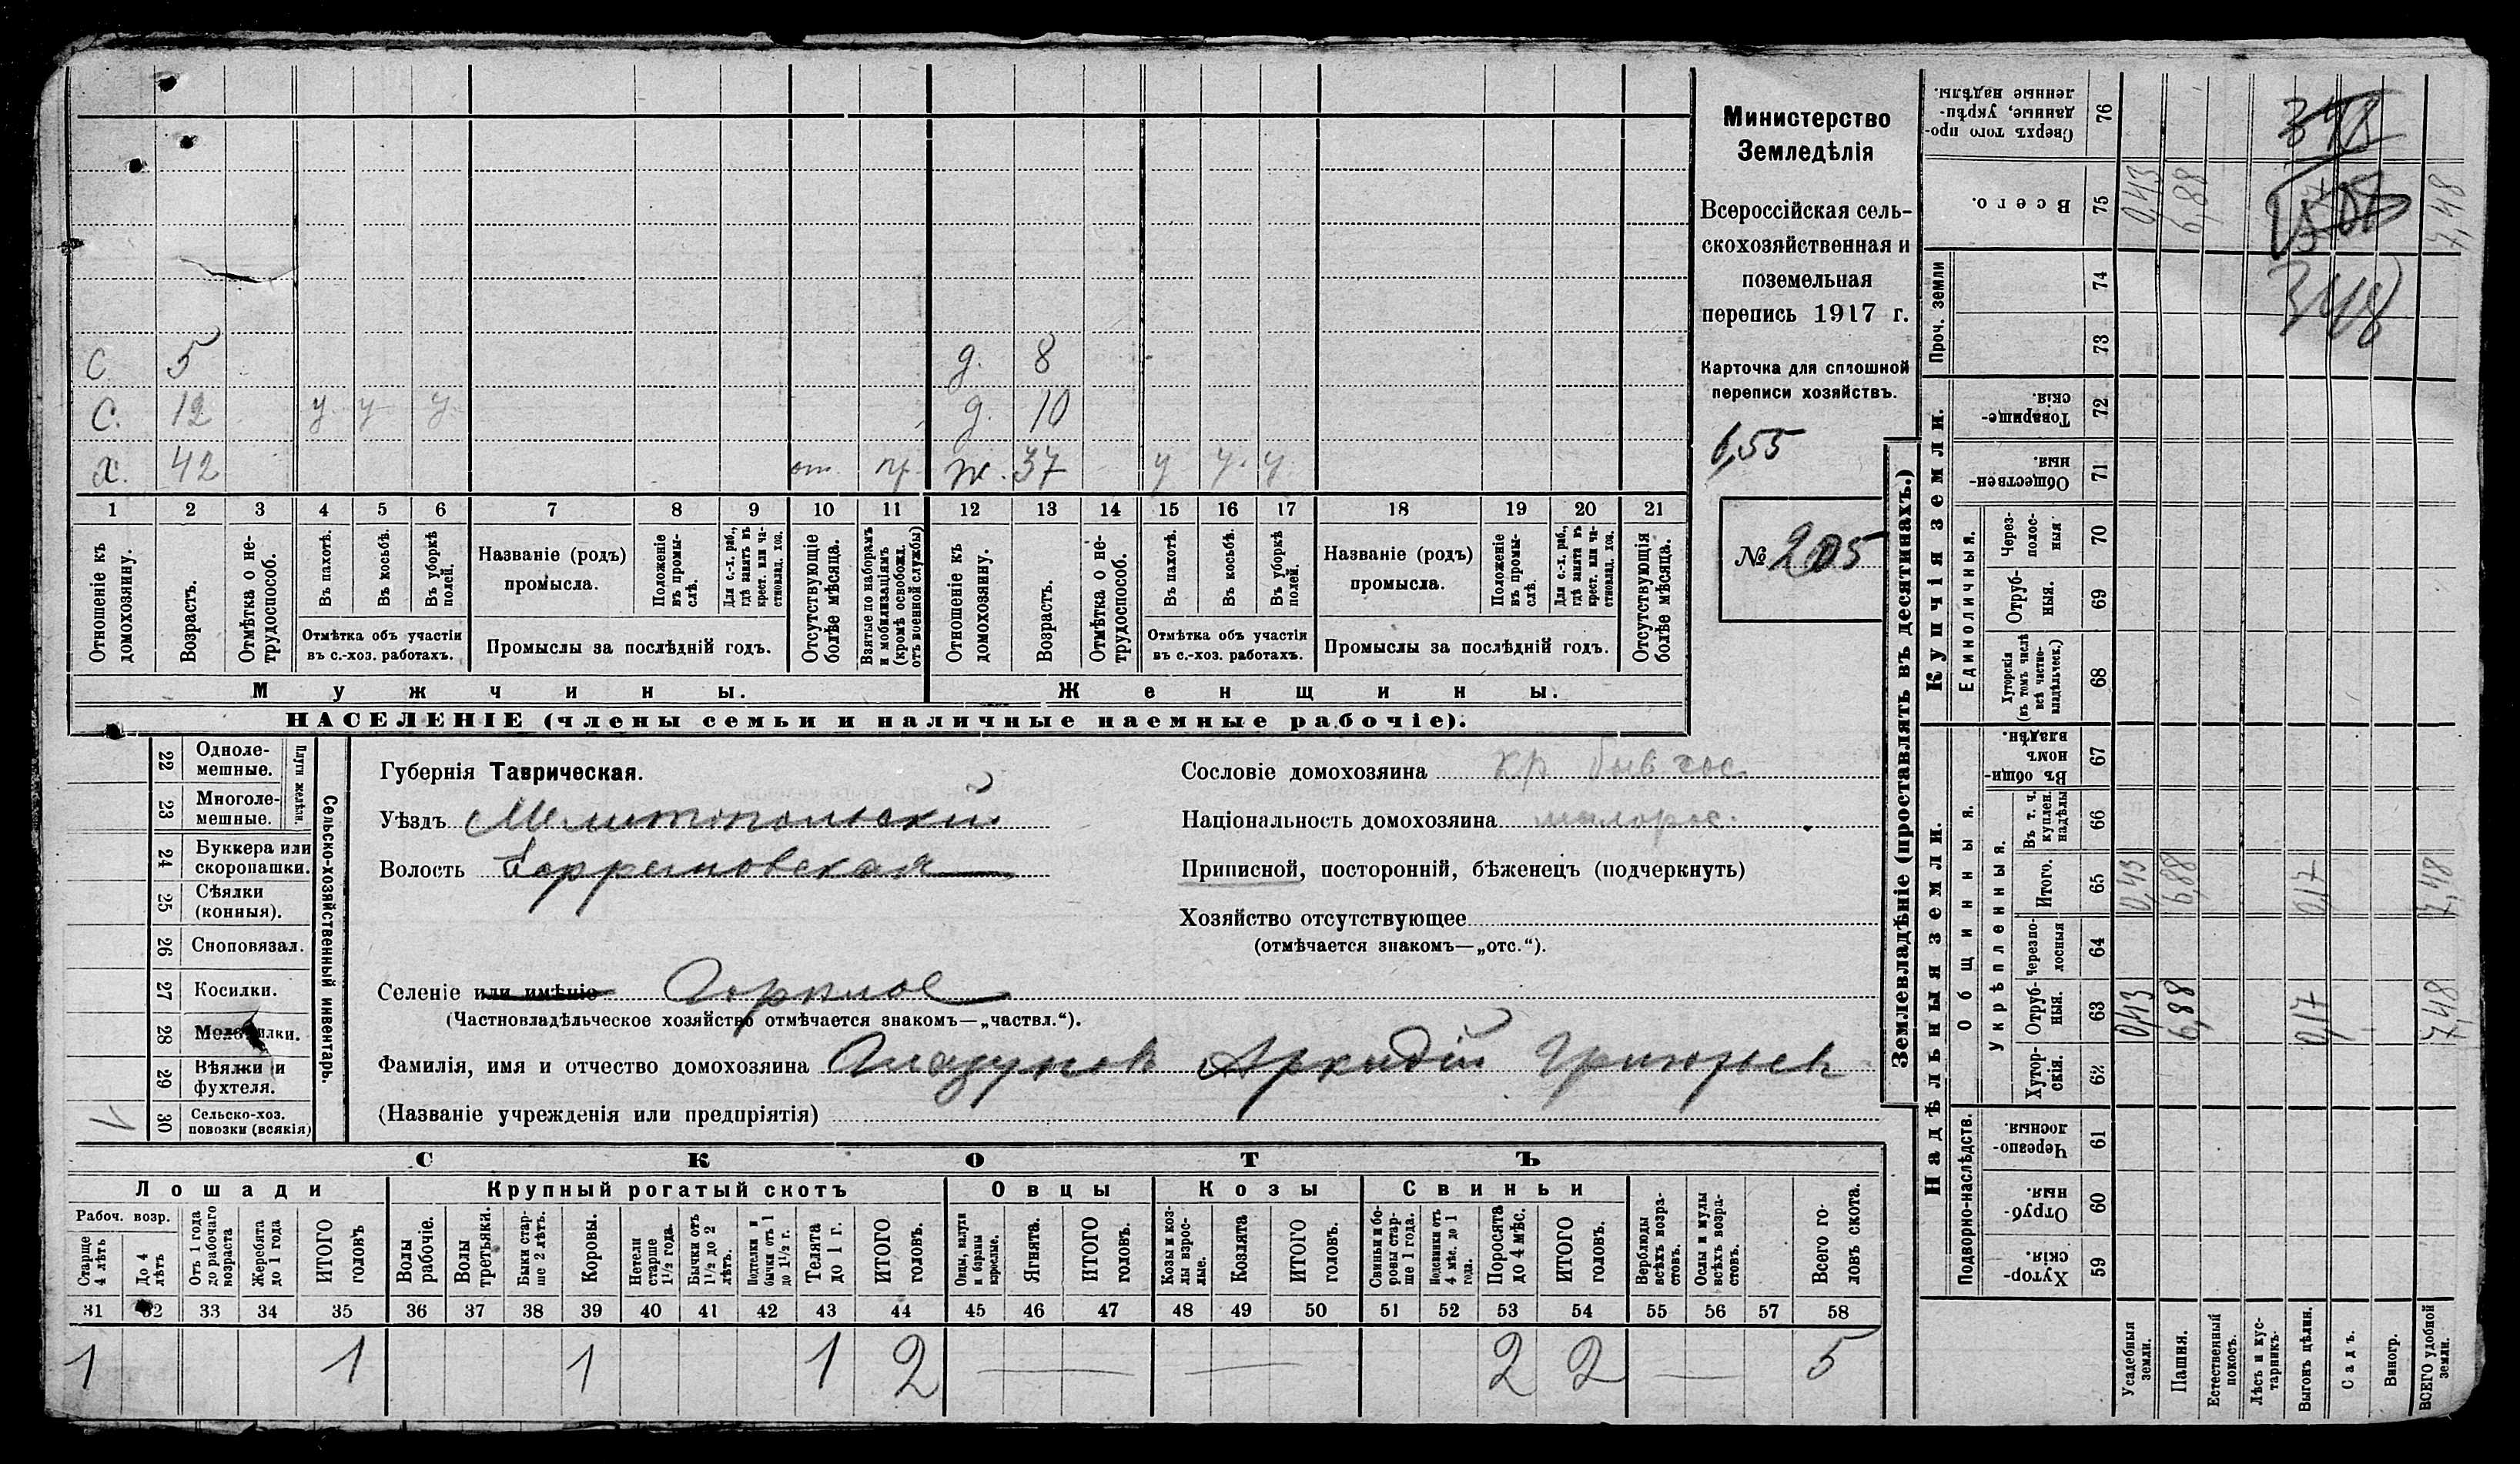 Министерство
Земледѣлія
Всероссійская сель-
скохозяйственная и
поземельная
перепись 1917 г.
Карточка для сплошной
переписи хозяйствъ.
6,55
№ 205
С 5 д. 8
С. 12 у у у д. 10
х. 42 от. пр. ж. 37 у у. у
1 2 3 4 5 6 7 8 9 10 11 12 13 14 15 16 17 18 19 20 21
Отношеніе къ домохозяину.
Возрастъ.
Отмѣтка о не-трудоспособ.
Въ пахотѣ.
Въ косьбѣ.
Въ уборкѣ полей.
Отмѣтка объ участіи
въ с.-хоз. работахъ.
Названіе (родъ)
промысла.
Положеніе въ промы-слѣ.
Для с.-х. раб., гдѣ занятъ въ крест. или ча-стновлад. хоз.
Промыслы за послѣдній годъ.
Отсутствующіе болѣе мѣсяца.
Взятые по наборамъ и мобилизаціямъ (кромѣ освобожд. отъ военной службы)
Отношеніе къ домохозяину.
Возрастъ.
Отмѣтка о не-трудоспособ.
Въ пахотѣ.
Въ косьбѣ.
Въ уборкѣ полей.
Отмѣтка объ участіи
въ с.-хоз. работахъ.
Названіе (родъ)
промысла.
Положеніе въ промы-слѣ.
Для с.-х. раб., гдѣ занята въ крест. или ча-стновлад. хоз.
Промыслы за послѣдній годъ.
Отсутствующія болѣе мѣсяца.
Мужчины. Женщины.
НАСЕЛЕНІЕ (члены семьи и наличные наемные рабочіе).
Сельско-хозяйственный инвентарь.
Плуги желѣзн.
22 Одноле-мешные.
23 Многоле-мешные.
24 Буккера или скоропашки.
25 Сѣялки (конныя).
26 Сноповязал.
27 Косилки.
28 Молотилки.
29 Вѣялки и фухтеля.
30 Сельско-хоз. повозки (всякія)
Губернія Таврическая.
Уѣздъ Мелитопольскій
Волость
Селеніе или имѣніе Горькое
(Частновладѣльческое хозяйство отмѣчается знакомъ—„частвл.“).
Фамилія, имя и отчество домохозяина Гладунов Аркадій Григорьев
(Названіе учрежденія или предпріятія)
Сословіе домохозяина кр быв гос
Національность домохозяина малорос.
Приписной, посторонній, бѣженецъ (подчеркнуть)
Хозяйство отсутствующее
(отмѣчается знакомъ—„отс.“).
СКОТЪ
Лошади Крупный рогатый скотъ Овцы Козы Свиньи
Рабоч. возр.
Старше 4 лѣтъ
До 4 лѣтъ
Отъ 1 года до рабочаго возраста
Жеребята до 1 года
ИТОГО головъ
Волы рабочіе.
Волы третьяки.
Быки стар-ше 2 лѣтъ.
Коровы.
Нетели старше 1½ года.
Бычки отъ 1½ до 2 лѣтъ.
Подтелки и бычки отъ 1 до 1½ г.
Телята до 1 г.
ИТОГО головъ.
Овцы, валухи и бараны взрослые.
Ягнята.
ИТОГО головъ.
Козы и коз-лы взрос-лые.
Козлята
ИТОГО головъ.
Свиньи и бо-ровы стар-ше 1 года.
Подсвинки отъ 4 мѣс. до 1 года.
Поросята до 4 мѣс.
ИТОГО головъ.
Верблюды всѣхъ возра-стовъ.
Ослы и мулы всѣхъ возра-стовъ.
Всего го-ловъ скота.
31 32 33 34 35 36 37 38 39 40 41 42 43 44 45 46 47 48 49 50 51 52 53 54 55 56 57 58
1 1 1 1 2 — — 2 2 — 5
Землевладѣніе (проставлять въ десятинахъ.)
Надѣльныя земли.
Купчія земли.
Проч. земли
Подворно-наслѣдств.
Общинныя.
Укрѣпленныя.
Единоличныя.
76 Сверхъ того про-данные, укрѣп-ленные надѣлы.
75 Всего. 0,43 6,88 7,48
74
73
72 Товарище-скія.
71 Обществен-ныя.
70 Через-полос-ныя
69 Отруб-ныя.
68 Хуторскія (въ томъ числѣ всѣ частно-владѣльческ.)
67 Въ общин-номъ владѣн.
66 Въ т. ч. куплен. надѣлы
65 Итого. 0,43 6,88 0,17 7,48
64 Черезпо-лосныя
63 Отруб-ныя. 0,43 6,88 0,17 7,48
62 Хутор-скія.
61 Черезпо-лосныя.
60 Отруб-ныя.
59 Хутор-скія.
Усадебныя земли.
Пашня.
Естественный покосъ.
Лѣсъ и кус-тарникъ.
Выгонъ цѣлин.
Садъ.
Виногр.
ВСЕГО удобной земли.
348
348